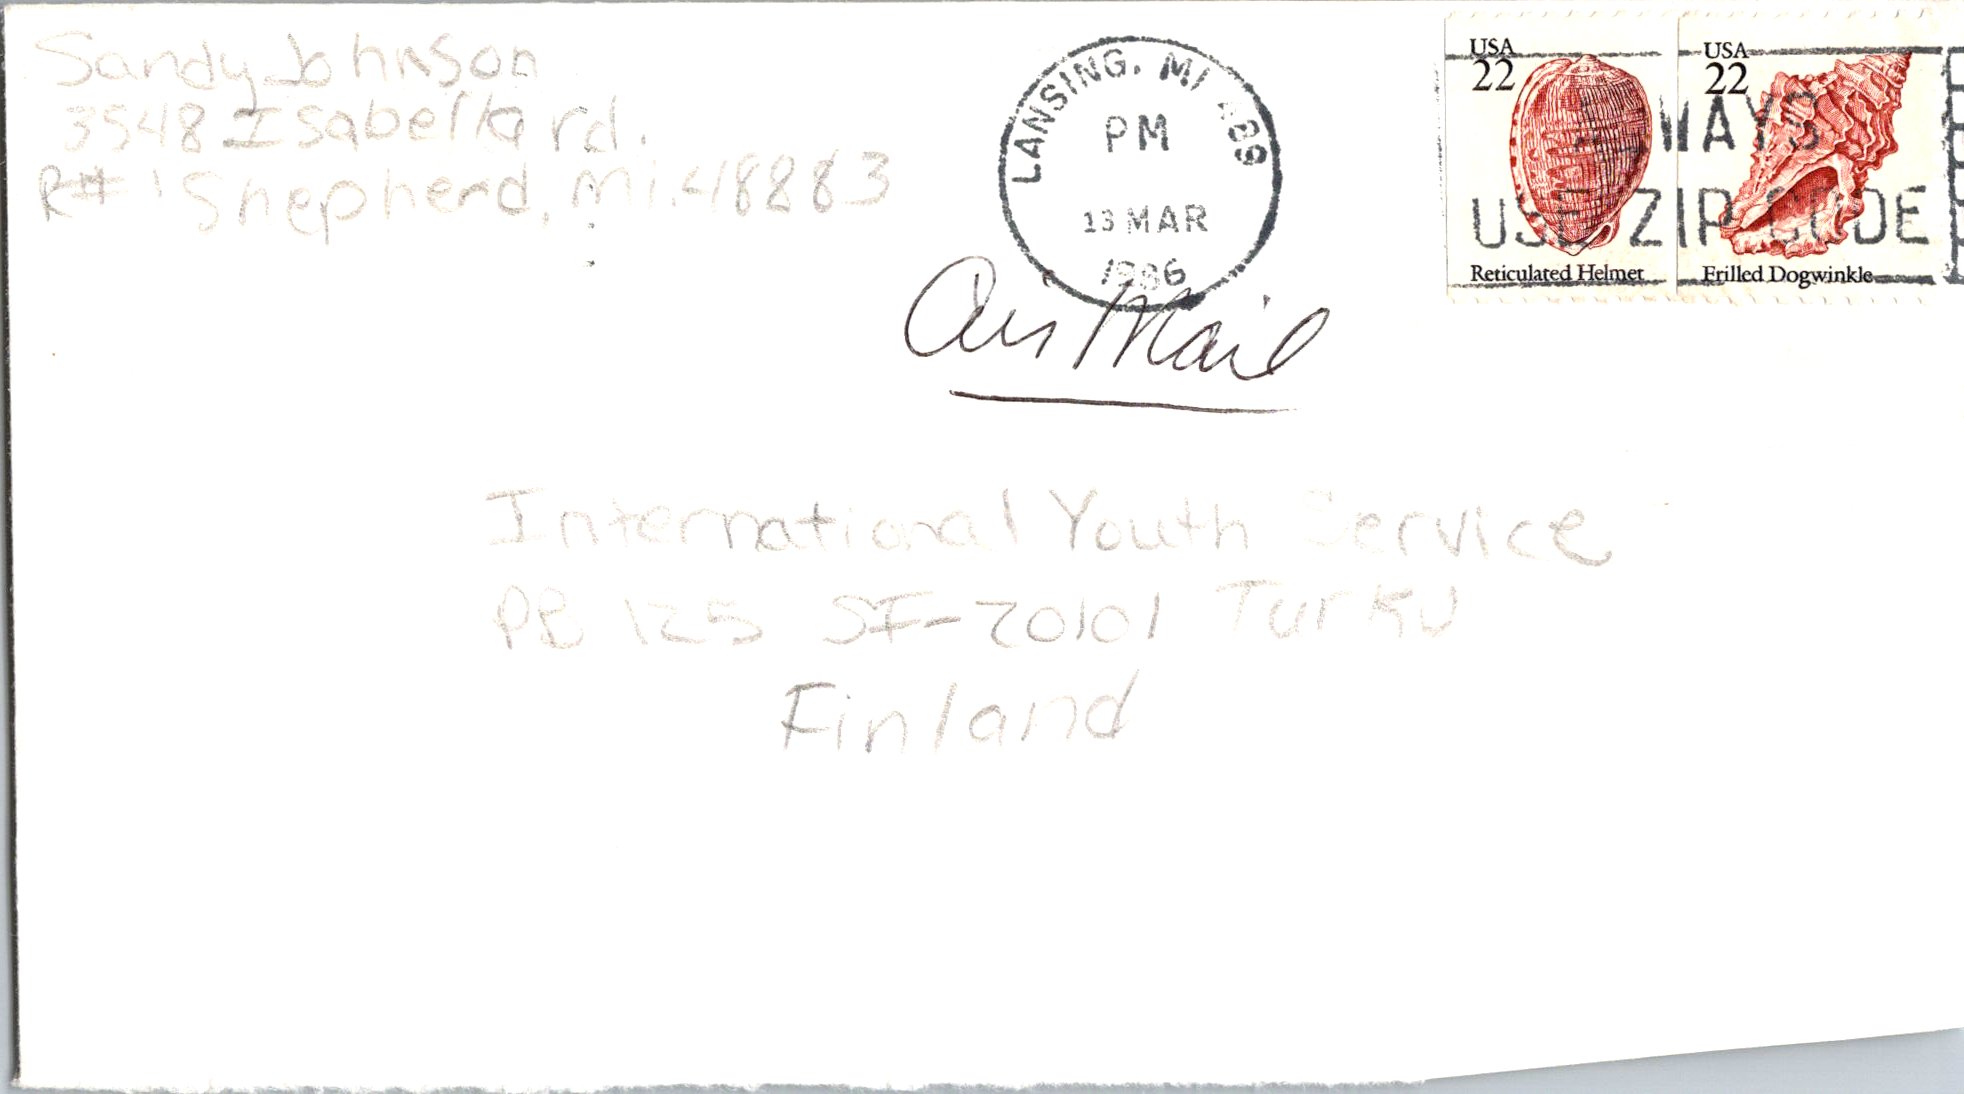 Sandy Johnson
3548 Isabella rd.
R# 1 Shepherd, Mi. 48883
LANSING, MI 489
PM
13 MAR
1986
USA
22
Reticulated Helmet
USA
22
Frilled Dogwinkle
ALWAYS
USE ZIP CODE
Air Mail
International Youth Service
PB 125 SF-20101 Turku
Finland